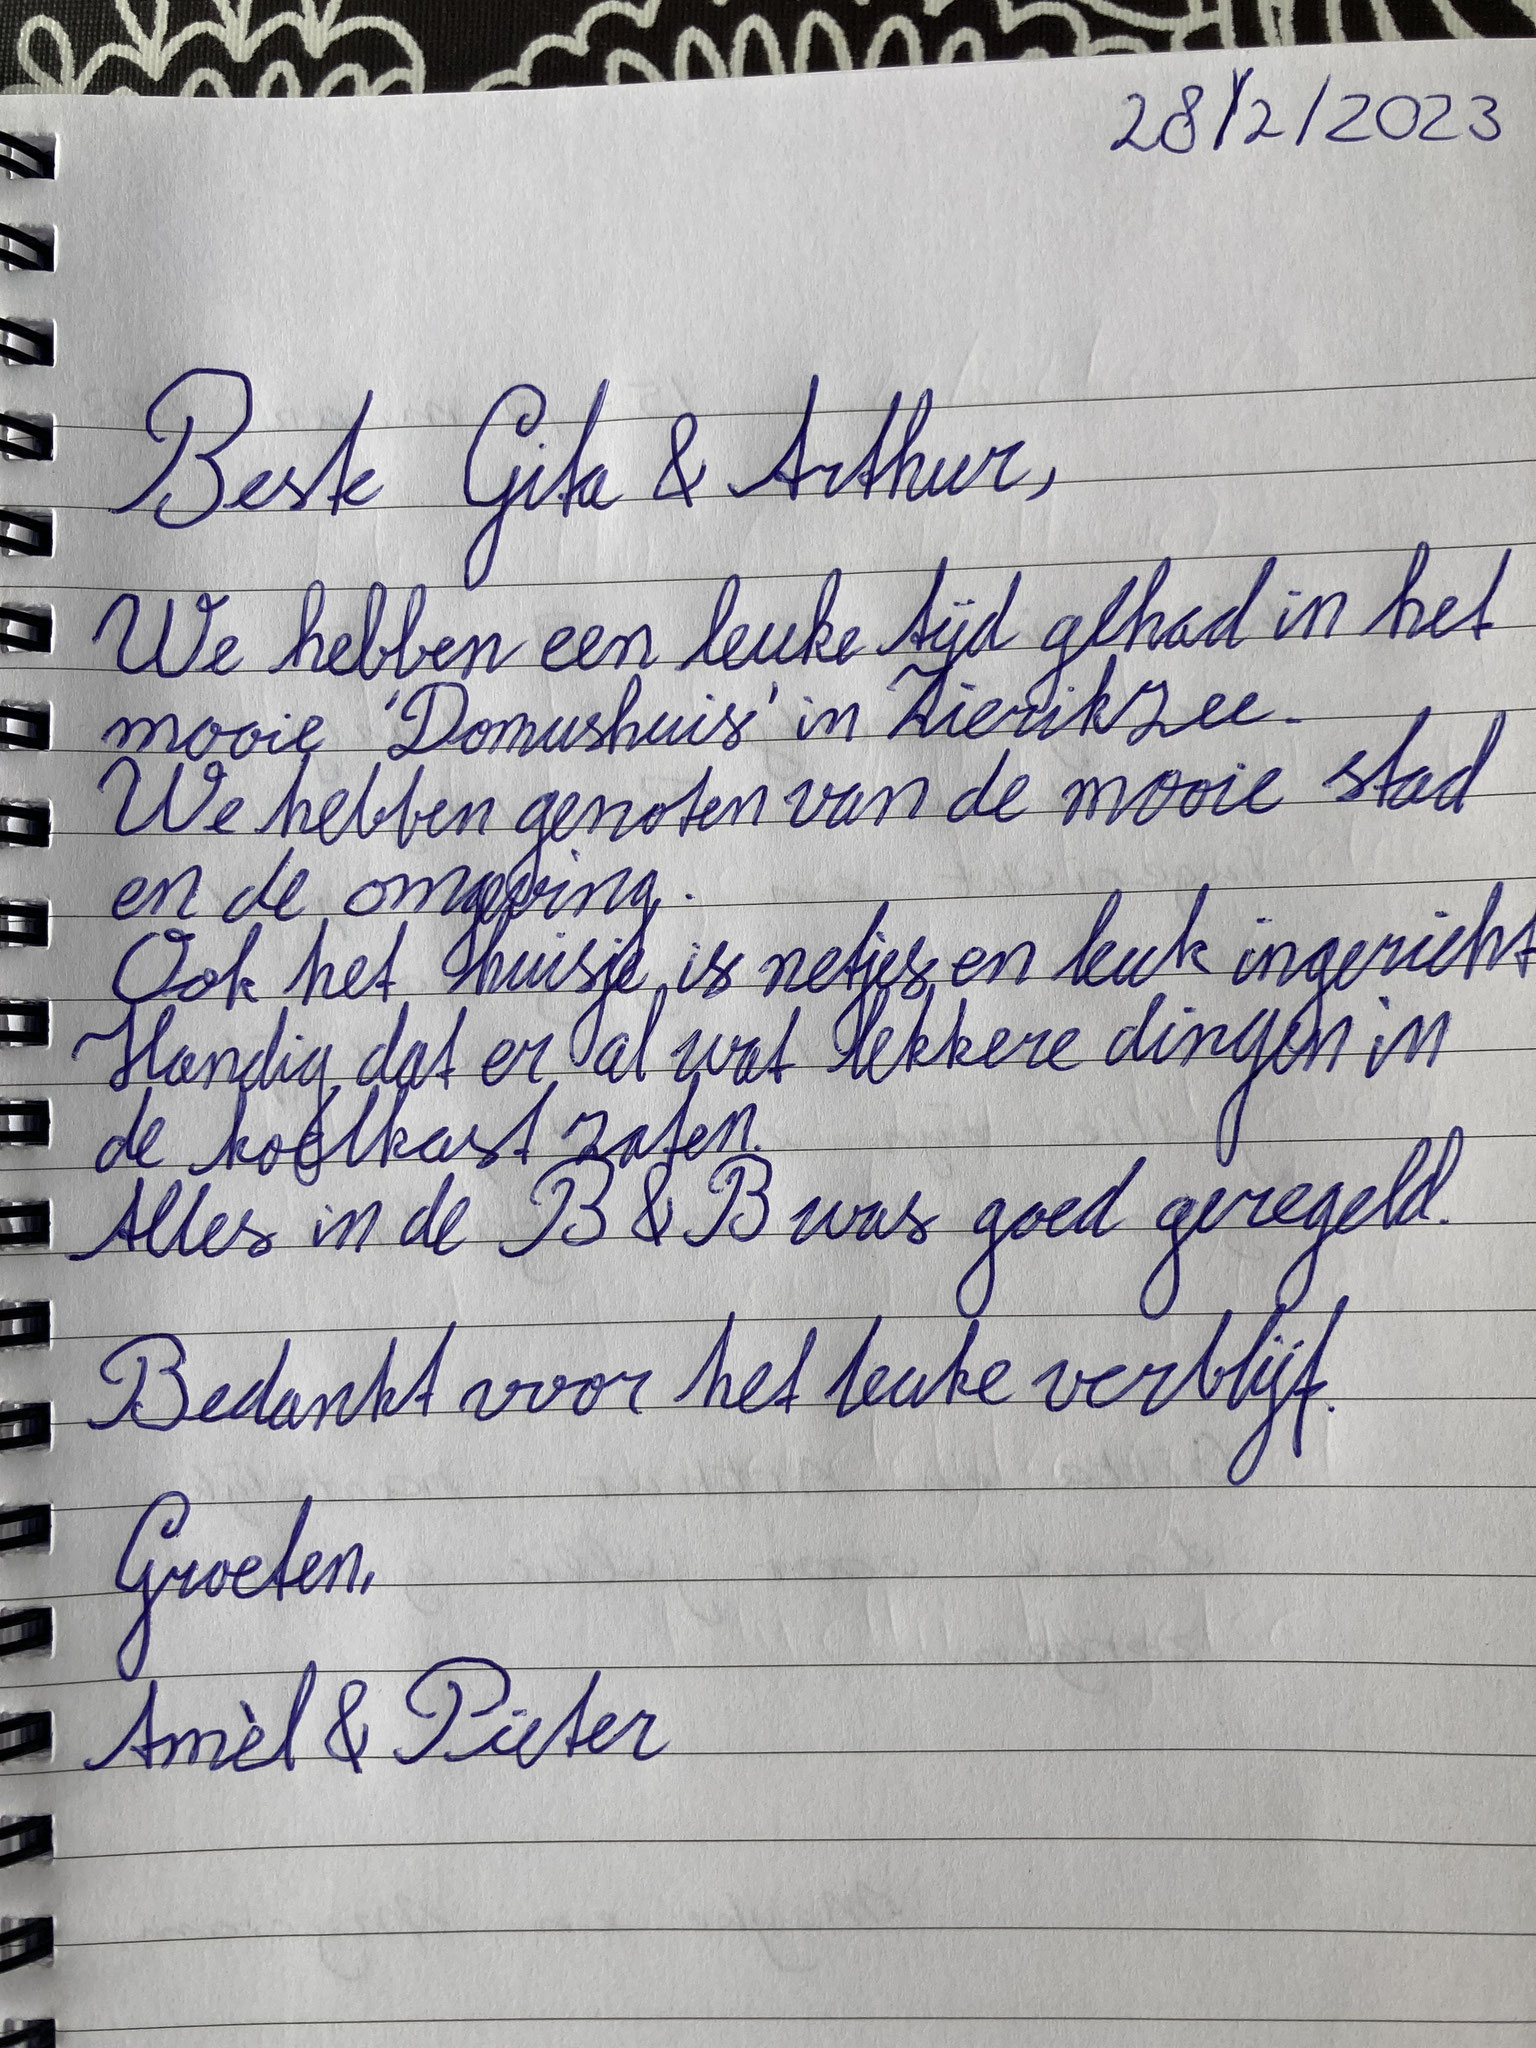 28/2/2023
Beste Gita & Arthur,
We hebben een leuke tijd gehad in het
mooie 'Domushuis' in Zierikzee.
We hebben genoten van de mooie stad
en de omgeving.
Ook het huisje is netjes en leuk ingericht
Handig dat er al wat lekkere dingen in
de koelkast zaten.
Alles in de B&B was goed geregeld.
Bedankt voor het leuke verblijf.
Groeten,
Amèl & Pieter